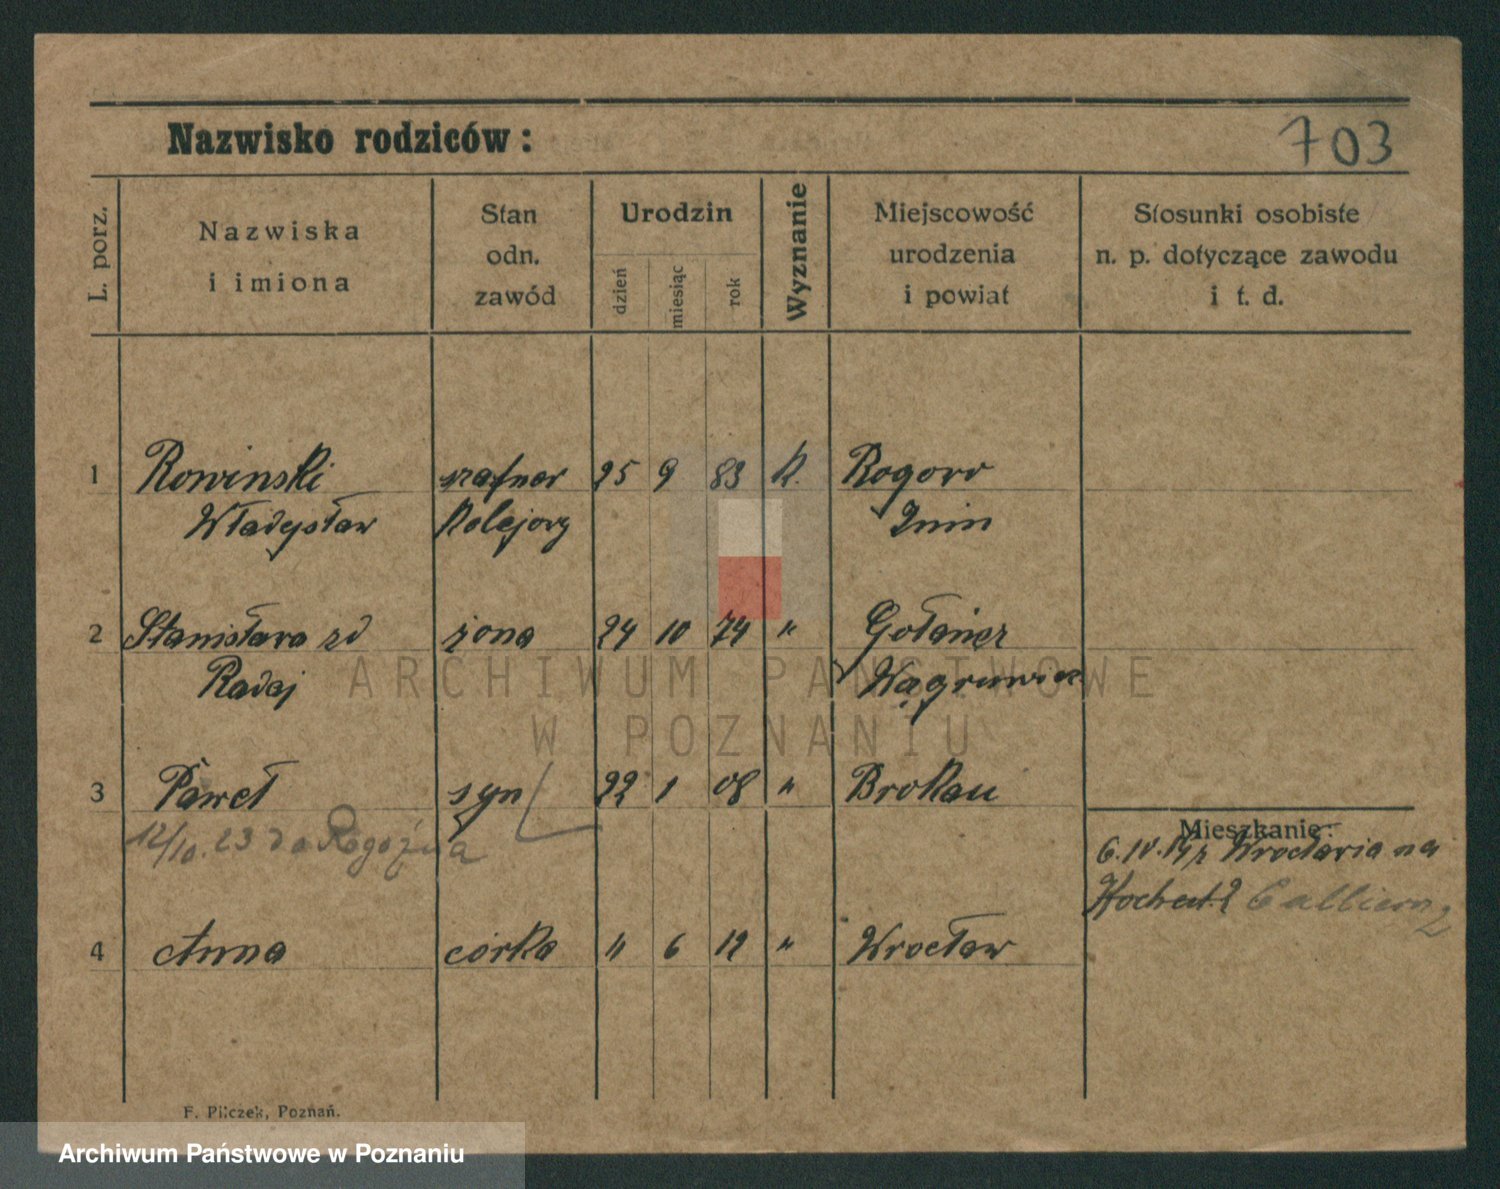 Nazwisko rodziców:
703
L. porz.
Nazwiska
i imiona
Stan
odn.
zawód
Urodzin
dzień
miesiąc
rok
Wyznanie
Miejscowość
urodzenia
i powiat
Stosunki osobiste
n. p. dotyczące zawodu
i t. d.
1 Rowinski szafner 25 9 83 K. Rogowo
Władysław Kolejowy Żnin
2 Stanisława zd żona 24 10 74 " Gołańcz
Radaj Wągrowiec
ARCHIWUM PAŃSTWOWE
W POZNANIU
3 Paweł syn 22 1 08 " Brokau
12/10. 23 do Rogoźna
Mieszkanie:
6. IV. Wrocławia na
4 Anna córka 11 6 12 " Wrocław
F. Pilczek, Poznań.
Archiwum Państwowe w Poznaniu